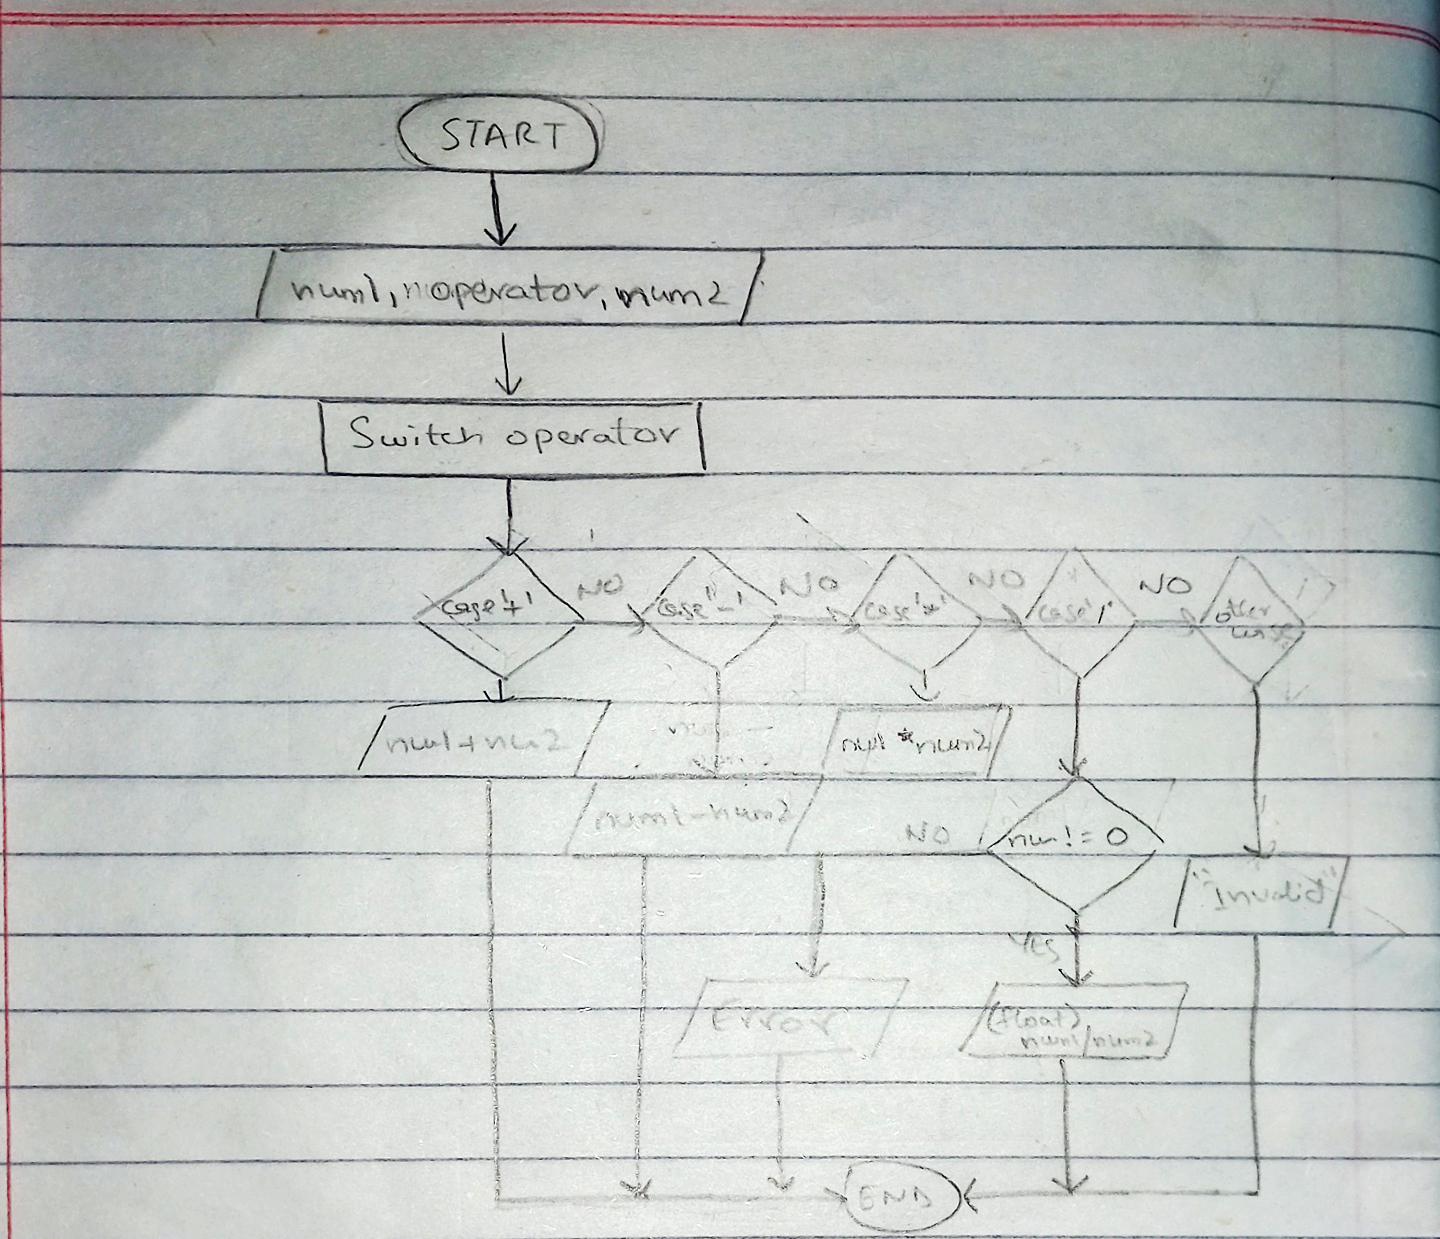 START
num1, operator, num2
Switch operator
case '+'
NO
case '-'
NO
case '*'
NO
case '/'
NO
other
wise
num1+num2
num1 *num2
num1-num2
NO
num != 0
"Invalid"
YES
Error
(float)
num1/num2
END